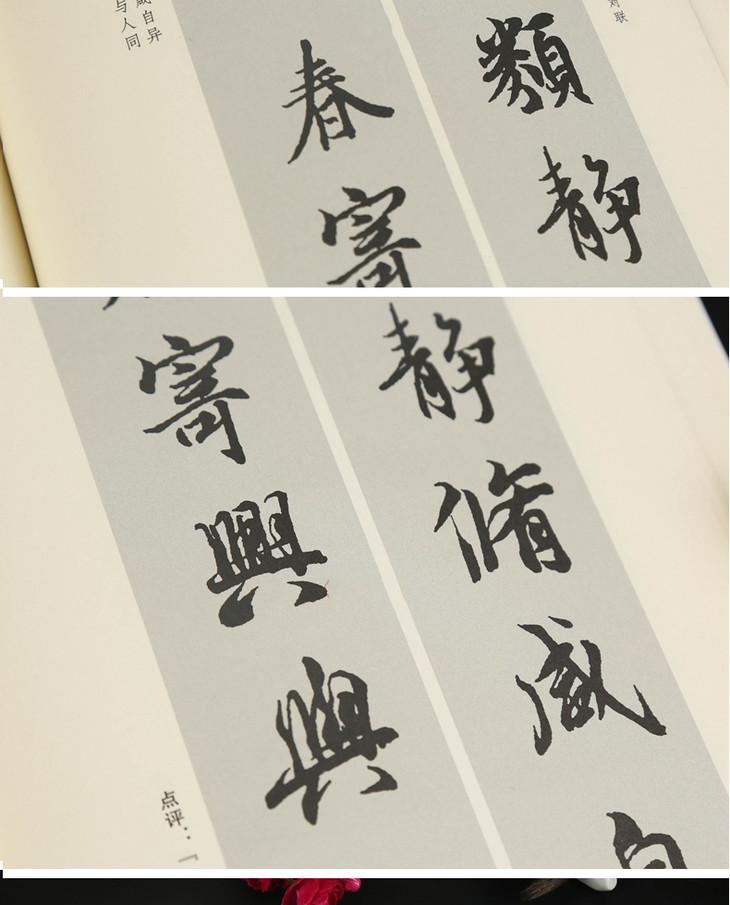 对联
類静
春寄
咸自异
与人同
静脩咸自
寄興與
点评：『